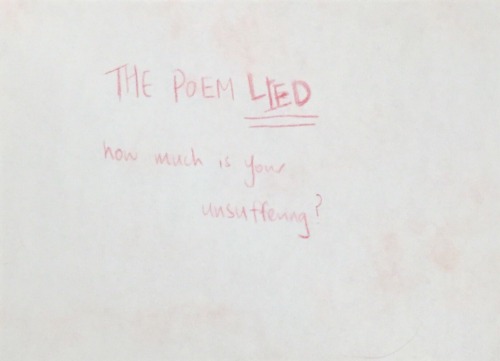 THE POEM LIED
how much is your
unsuffering?